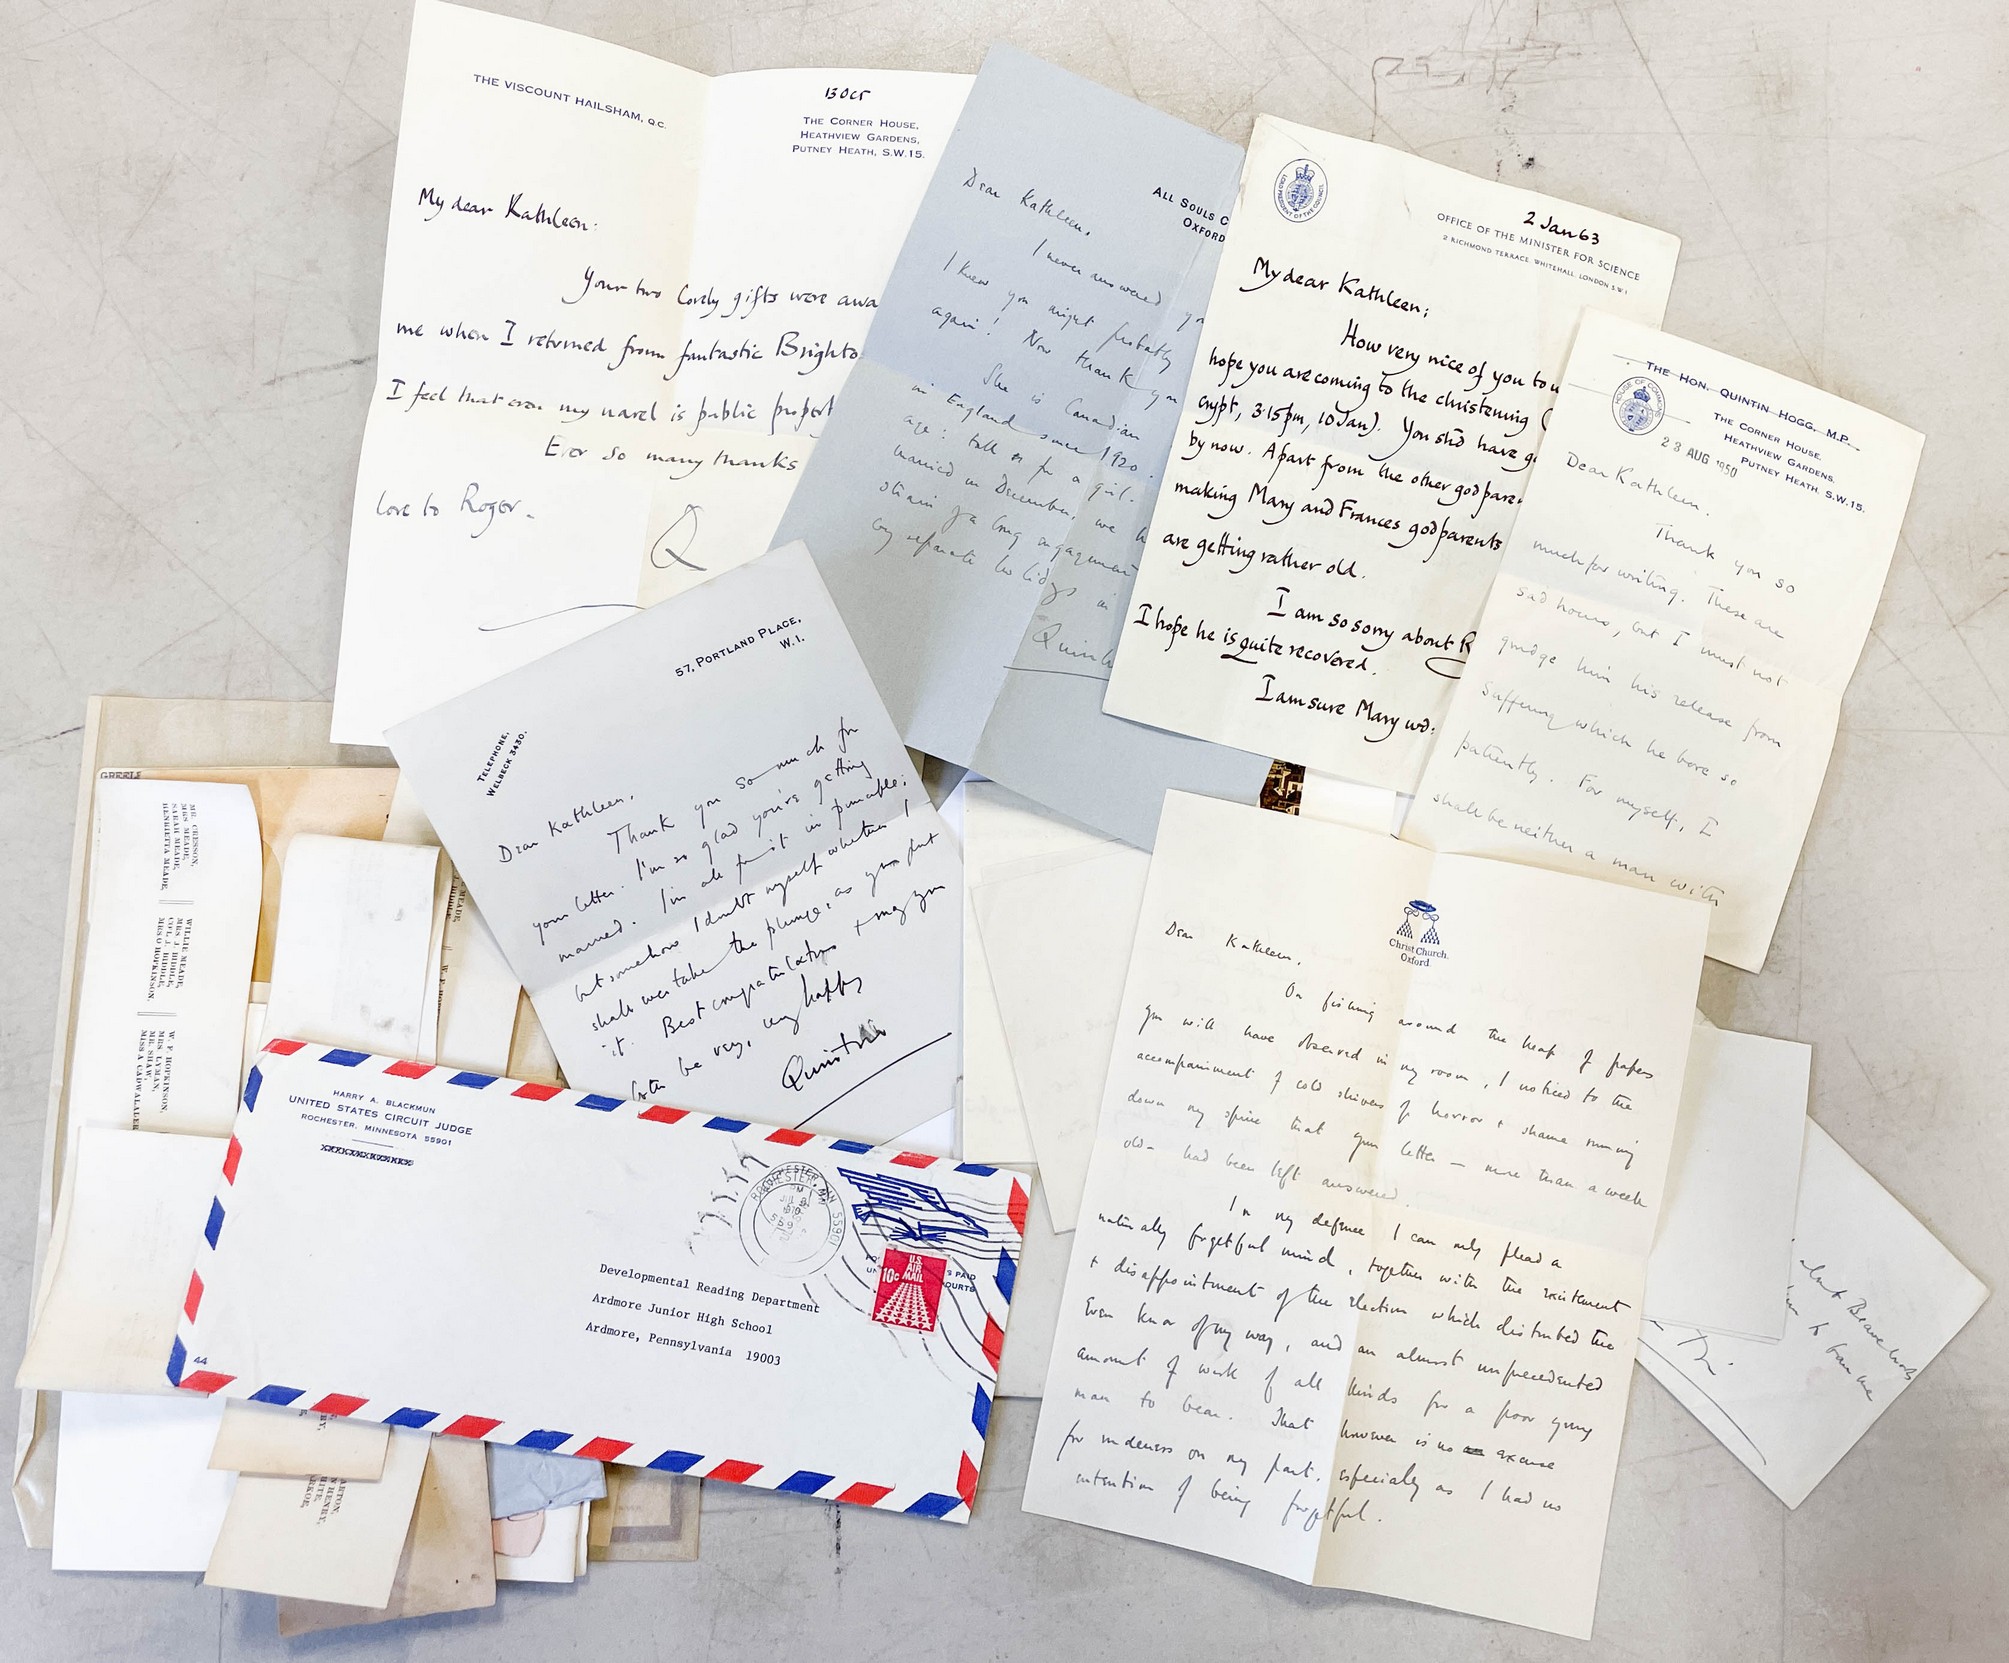 THE VISCOUNT HAILSHAM, Q.C.
13 Oct
THE CORNER HOUSE,
HEATHVIEW GARDENS,
PUTNEY HEATH, S.W.15.
My dear Kathleen:
Your two lovely gifts were awa
me when I returned from fantastic Brighto
I feel that even my navel is public propert
Ever so many thanks
love to Roger.
Q
ALL SOULS C
OXFORD
Dear Kathleen,
I never answered yo
I knew you might probably
again! Now thank you
She is Canadian
in England since 1920.
age: tall for a girl.
married in December, we h
strain of a long engagement
separate holidays in
Quin
LORD PRESIDENT OF THE COUNCIL
2 Jan 63
OFFICE OF THE MINISTER FOR SCIENCE
2 RICHMOND TERRACE, WHITEHALL, LONDON S.W.1
My dear Kathleen:
How very nice of you to w
hope you are coming to the christening (
crypt, 3.15pm, 10 Jan). You shd have go
by now. Apart from the other godpare
making Mary and Frances godparents
are getting rather old.
I am so sorry about R
I hope he is quite recovered.
I am sure Mary wd.
THE HON. QUINTIN HOGG, M.P.
HOUSE OF COMMONS
THE CORNER HOUSE,
HEATHVIEW GARDENS,
PUTNEY HEATH, S.W.15.
23 AUG 1950
Dear Kathleen.
Thank you so
much for writing. These are
sad hours, but I must not
grudge him his release from
suffering which he bore so
patiently. For myself, I
shall be neither a man with
57, PORTLAND PLACE,
W.1.
TELEPHONE,
WELBECK 3430.
Dear Kathleen,
Thank you so much for
your letter. I'm so glad you're getting
married. I'm all for it in principle;
but somehow I doubt myself whether I
shall ever take the plunge, as you put
it. Best congratulations & may you
be very, very happy
Quintin
Christ Church.
Oxford.
Dear Kathleen,
On fishing around the heap of papers
you will have observed in my room, I noticed to the
accompaniment of cold shivers of horror & shame running
down my spine that your letter — more than a week
old — had been left answered.
In my defence I can only plead a
naturally forgetful mind, together with the excitement
& disappointment of the election which disturbed the
even tenor of my way, and an almost unprecedented
amount of work of all kinds for a poor young
man to bear. That however is no excuse
for rudeness on my part, especially as I had no
intention of being forgetful.
MR. CRESSON,
MRS MEADE,
SARAH MEADE,
HENRIETTA MEADE,
WILLIE MEADE,
MRS. J. BIDDLE,
CPL. J. BIDDLE,
MRS O HOPKINSON.
W. F. HOPKINSON,
MRS. LYMAN,
MR. SHAW,
MISS A CADWALADER
HARRY A. BLACKMUN
UNITED STATES CIRCUIT JUDGE
ROCHESTER, MINNESOTA 55901
ROCHESTER, MN 55901
U.S.
AIR
MAIL
10c
Developmental Reading Department
Ardmore Junior High School
Ardmore, Pennsylvania 19003
44